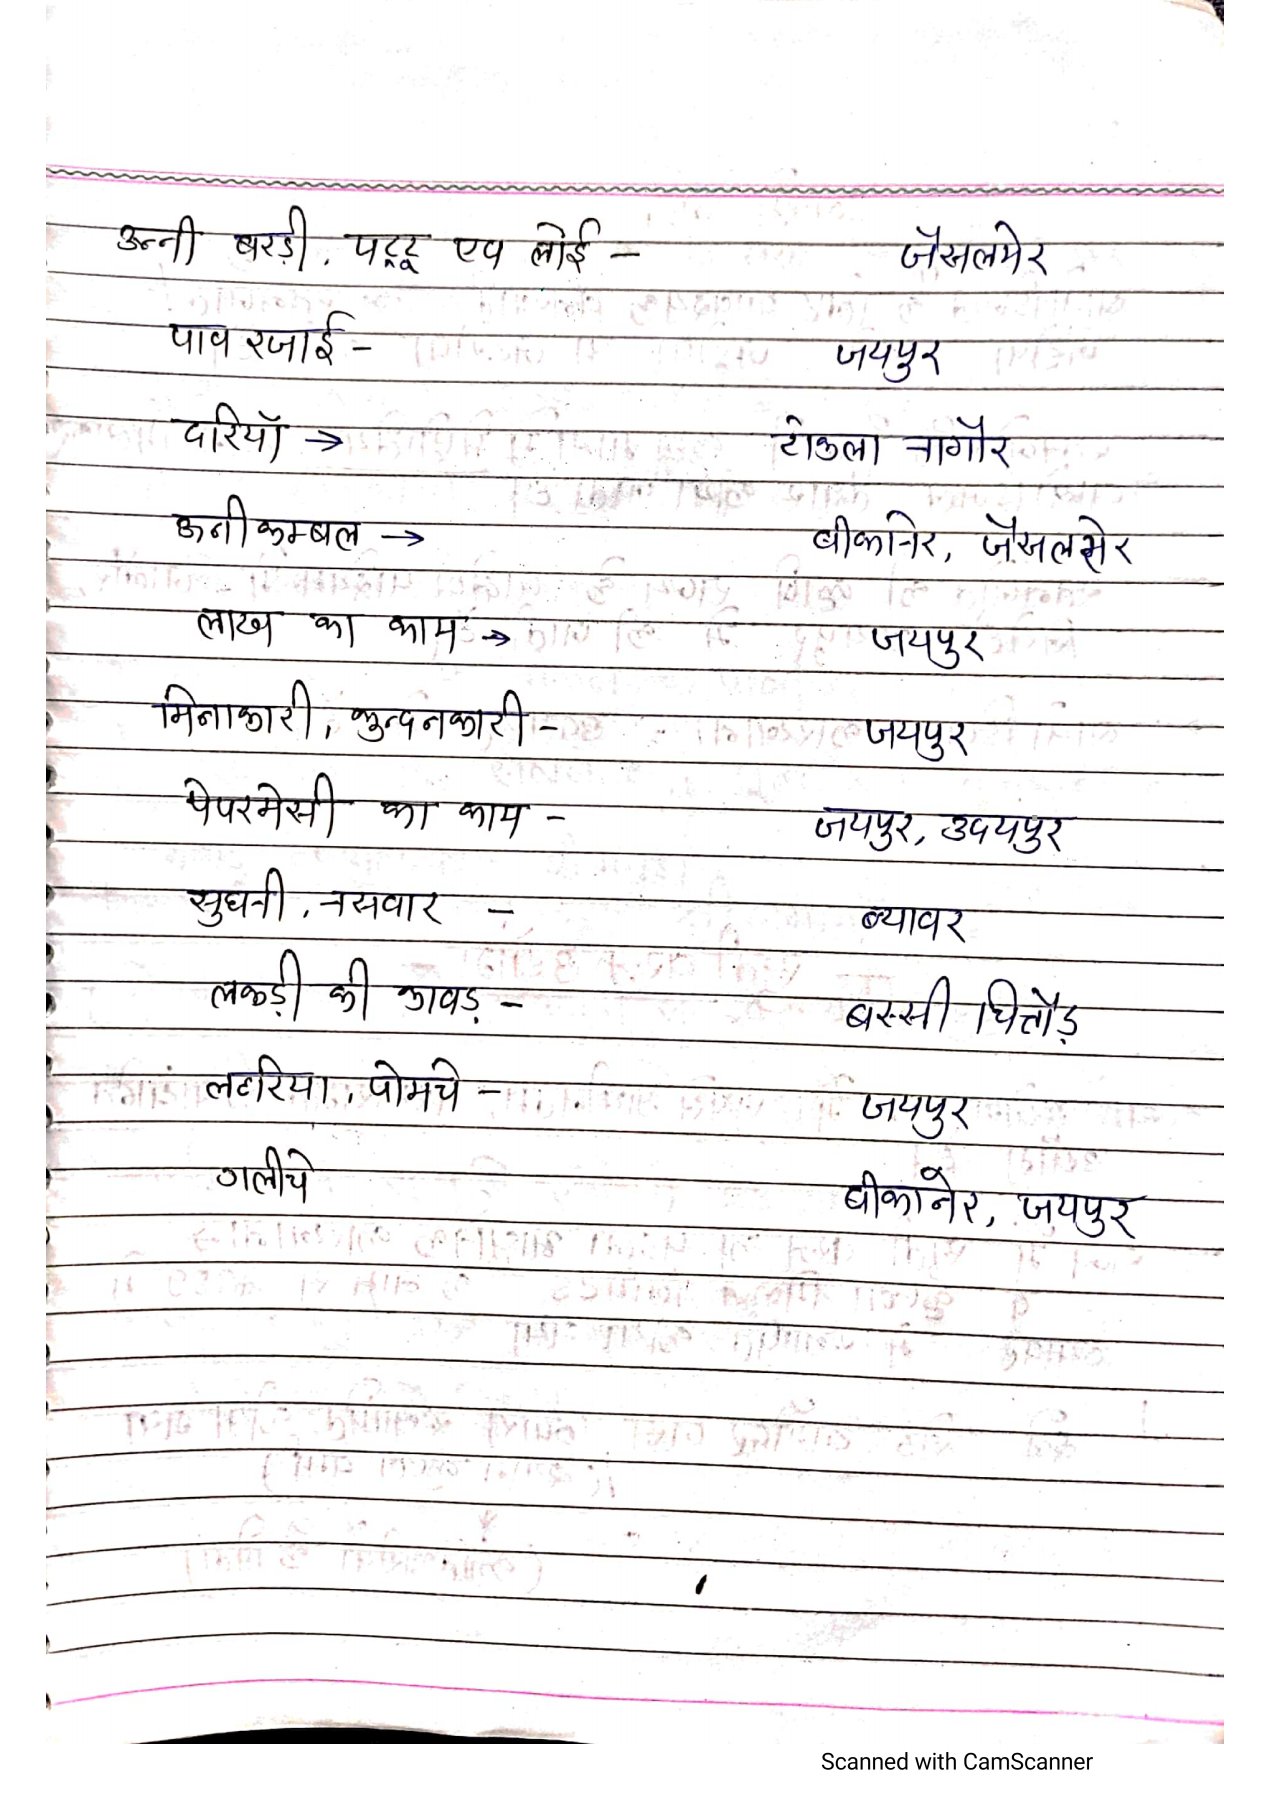 उन्नी बरड़ी, पट्टू एव लोई - जैसलमेर
पाव रजाई - जयपुर
दरियॉ → टांकला नागौर
ऊनी कम्बल → बीकानेर, जैसलमेर
लाख का काम → जयपुर
मिनाकारी, कुन्दनकारी - जयपुर
पेपरमेसी का काम - जयपुर, उदयपुर
सुघनी, नसवार - ब्यावर
लकड़ी की कावड़ - बस्सी चित्तौड़
लहरिया, पोमचे - जयपुर
गलीचे बीकानेर, जयपुर
Scanned with CamScanner